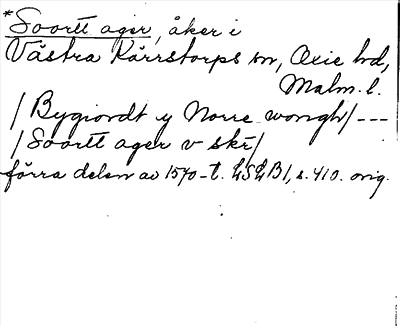 *Soortt ager, åker i
Västra Kärrstorps sn, Oxie hd,
Malm. l.
/Bygiordt y Norre wongh/---
/Soortt ager v skr/
förra delen av 1570-t. LSLB1, s. 410. orig.